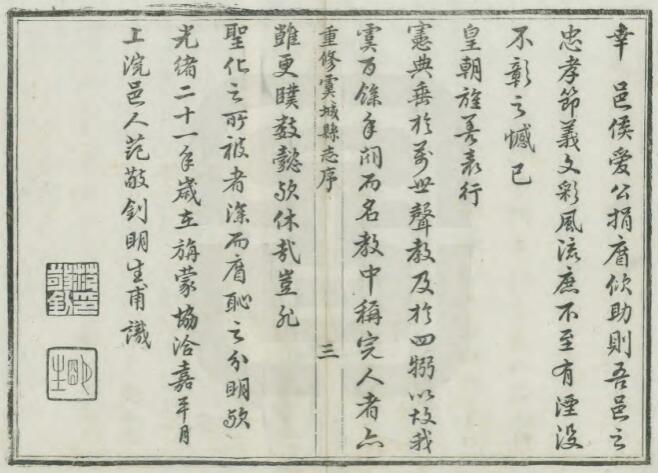 幸　邑侯爱公捐廉佽助則吾邑之
忠孝節義文彩風流庶不至有湮没
不彰之憾已
皇朝旌善表行
憲典垂於萬世聲教及於四彌以故我
虞百餘年间而名教中稱完人者亦
重修虞城縣志序
三
雖更僕數懿欤休哉豈非
聖化之所被者深而廉恥之分明欤
光绪二十一年歲在旃蒙協洽嘉平月
上浣邑人范敬釗明生甫識
范敬釗印
明生